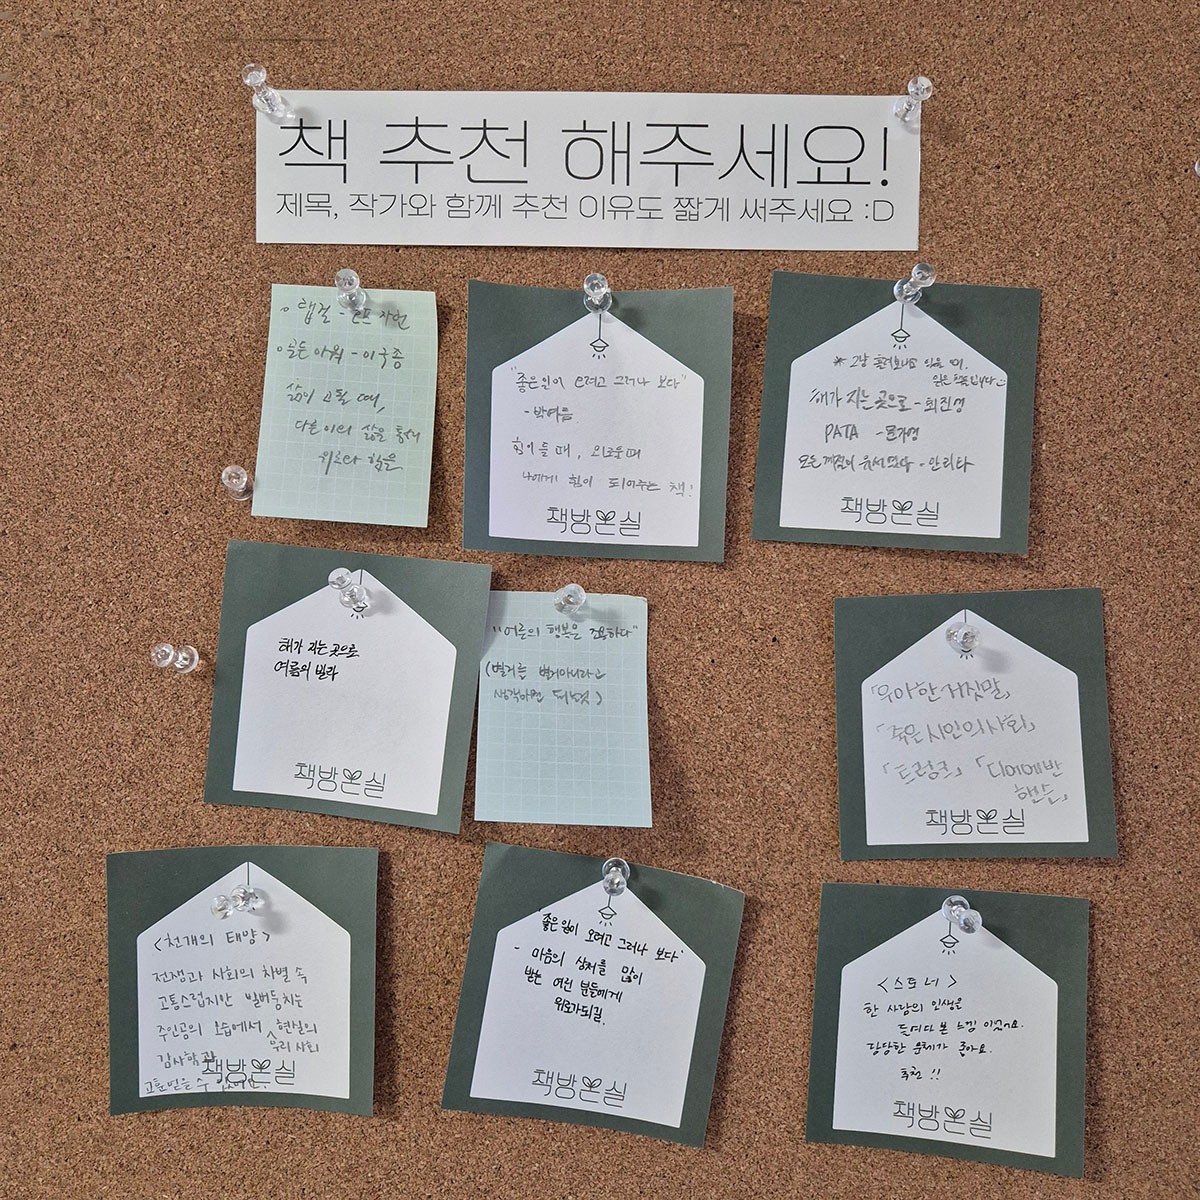 책 추천 해주세요!
제목, 작가와 함께 추천 이유도 짧게 써주세요 :D
◦ 랩걸 - 호프 자런
◦ 골든아워 - 이국종
삶이 고될 때,
다른이의 삶을 통해
위로와 힘을
"좋은일이 오려고 그러나 보다"
- 박여름
힘이들 때, 외로울 때
나에게 힘이 되어주는 책!
책방온실
* 그냥 흘려보내고 있을 때,
읽은 책들입니다
해가 지는 곳으로 - 최진영
PATA - 문가영
모든 계절이 유서였다 - 안리타
책방온실
해가 지는 곳으로
여름의 빌라
책방온실
"어른의 행복은 조용하다"
(별거를 별거아니라고
생각하면 되는것)
「우아한 거짓말」
「죽은 시인의 사회」
「드럼즈」 「디어 에반
핸슨」
책방온실
<천개의 태양>
전쟁과 사회의 차별 속
고통스럽지만 발버둥치는
주인공의 모습에서 현실의
우리 사회
감사함과
교훈 얻을 수 있어요.
책방온실
좋은일이 오려고 그러나 보다"
- 마음의 상처를 많이
받는 여린 분들에게
위로가되길.
책방온실
<스토너>
한 사람의 인생을
들여다 본 느낌 이었어요.
담담한 문체가 좋아요.
추천 !!
책방온실